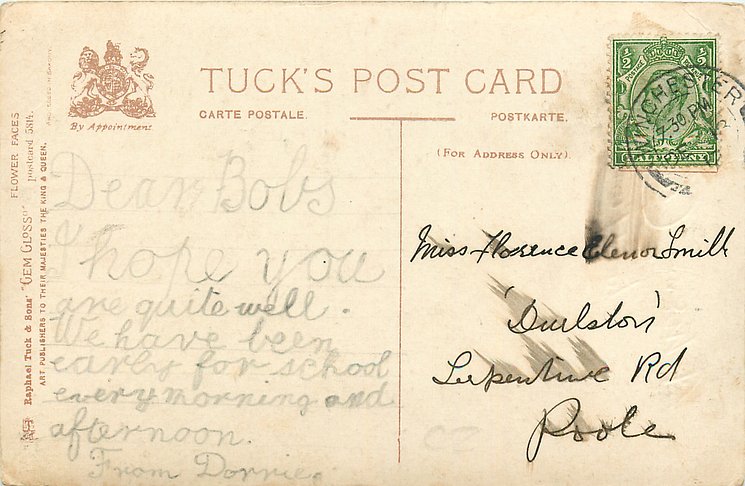 TUCK'S POST CARD
CARTE POSTALE.
POSTKARTE.
(FOR ADDRESS ONLY).
By Appointment
FLOWER FACES
Raphael Tuck & Sons' "GEM GLOSSO" postcard 5814.
ART PUBLISHERS TO THEIR MAJESTIES THE KING & QUEEN.
Dear Bobs
I hope you
are quite well.
We have been
early for school
every morning and
afternoon.
From Dorrie.
½ ½
HALFPENNY
WINCHESTER
7.30 PM
Miss Florence Elenor Smith
'Durlston'
Serpentine Rd
Poole